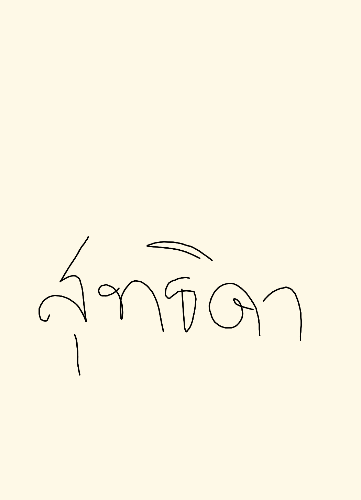 สุทธิดา